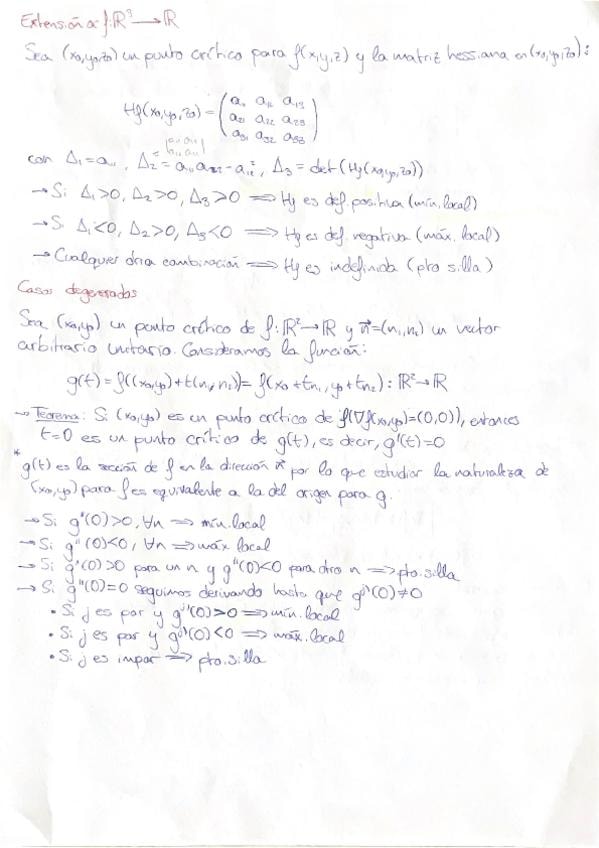 Extensión a f:ℝ³→ℝ
Sea (x₀,y₀,z₀) un punto crítico para f(x,y,z) y la matriz hessiana en (x₀,y₀,z₀):
Hf(x₀,y₀,z₀) = (a₁₁ a₁₂ a₁₃
a₂₁ a₂₂ a₂₃
a₃₁ a₃₂ a₃₃)
con Δ₁=a₁₁, Δ₂=a₁₁a₂₂-a₁₂², Δ₃=det(Hf(x₀,y₀,z₀))
→ Si Δ₁>0, Δ₂>0, Δ₃>0 ⟹ Hf es def. positiva (mín. local)
→ Si Δ₁<0, Δ₂>0, Δ₃<0 ⟹ Hf es def. negativa (máx. local)
→ Cualquier otra combinación ⟹ Hf es indefinida (pto silla)
Casos degenerados
Sea (x₀,y₀) un punto crítico de f:ℝ²→ℝ y n⃗=(n₁,n₂) un vector
arbitrario unitario. Consideramos la función:
g(t)=f((x₀,y₀)+t(n₁,n₂))=f(x₀+tn₁,y₀+tn₂):ℝ²→ℝ
→ Teorema: Si (x₀,y₀) es un punto crítico de f(∇f(x₀,y₀)=(0,0)), entonces
t=0 es un punto crítico de g(t), es decir, g'(t)=0
* g(t) es la sección de f en la dirección n⃗ por lo que estudiar la naturaleza de
(x₀,y₀) para f es equivalente a la del origen para g.
→ Si g''(0)>0, ∀n ⟹ mín. local
→ Si g''(0)<0, ∀n ⟹ máx local
→ Si g''(0)>0 para un n y g''(0)<0 para otro n ⟹ pto. silla
→ Si g''(0)=0 seguimos derivando hasta que g^(j)(0)≠0
• Si j es par y g^(j)(0)>0 ⟹ mín. local
• Si j es par y g^(j)(0)<0 ⟹ máx. local
• Si j es impar ⟹ pto. silla